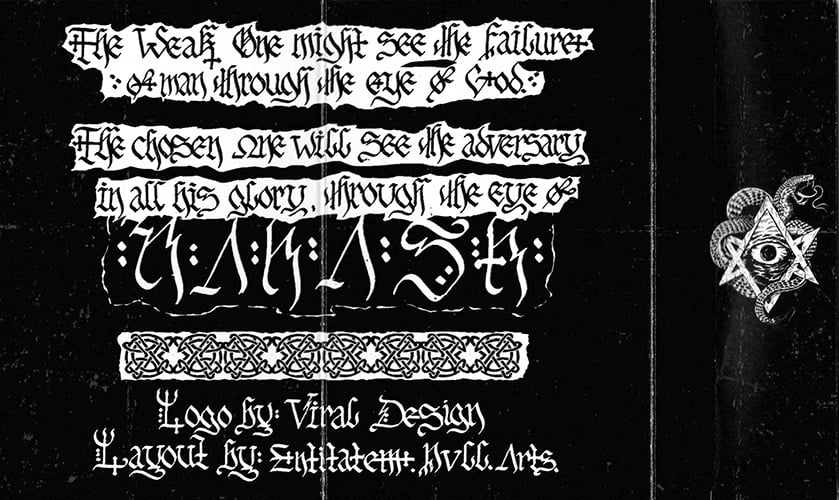 The Weak One might see the failure
of man through the eye of God.
The chosen one will see the adversary
in all his glory, through the eye of
:N:A:H:A:S:H:
Logo by: Viral Design
Layout by: Entitatem. Nvll. Arts.